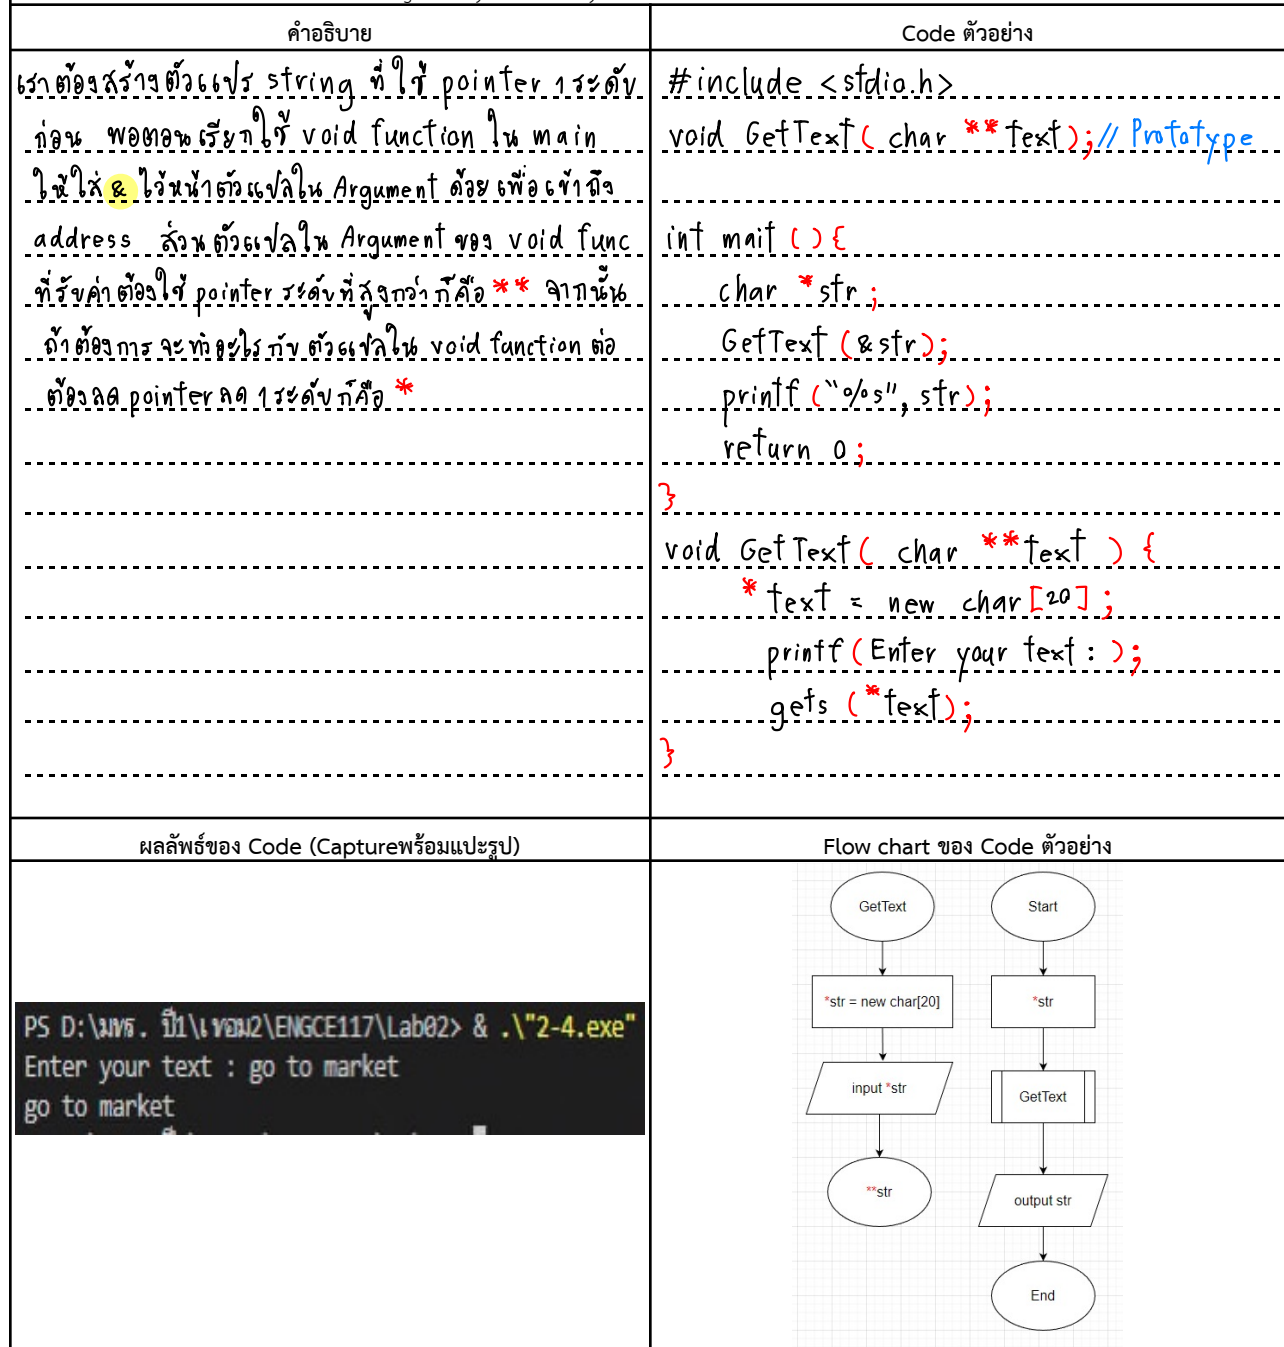 คำอธิบาย
เราต้องสร้างตัวแปร string ที่ใช้ pointer 1 ระดับ
ก่อน พอตอนเรียกใช้ void function ใน main
ให้ใส่ & ไว้หน้าตัวแปลใน Argument ด้วย เพื่อเข้าถึง
address ส่วนตัวแปลใน Argument ของ void func
ที่รับค่าต้องใช้ pointer ระดับที่สูงกว่า ก็คือ ** จากนั้น
ถ้าต้องการจะทำอะไรกับตัวแปลใน void function ต่อ
ต้องลด pointer ลด 1 ระดับก็คือ *
Code ตัวอย่าง
#include <stdio.h>
void GetText( char **text);// Prototype
int mait () {
char *str;
GetText (&str);
printf ("%s", str);
return 0;
}
void GetText( char **text ) {
*text = new char[20];
printf (Enter your text : );
gets (*text);
}
ผลลัพธ์ของ Code (Captureพร้อมแปะรูป)
PS D:\มทร. ปี1\เทอม2\ENGCE117\Lab02> & .\"2-4.exe"
Enter your text : go to market
go to market
Flow chart ของ Code ตัวอย่าง
GetText
*str = new char[20]
input *str
**str
Start
*str
GetText
output str
End